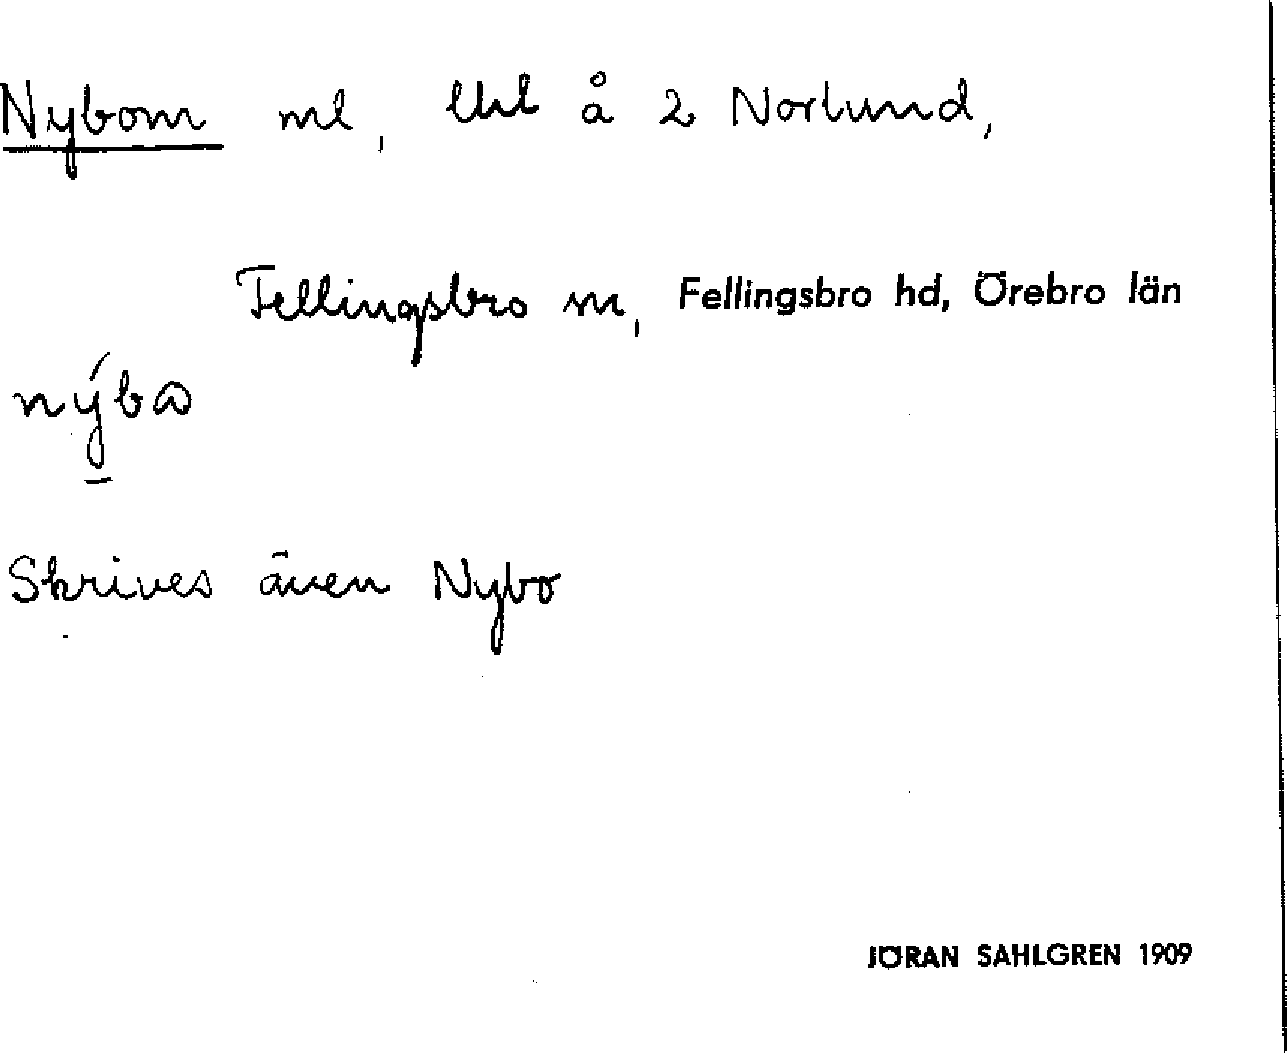 Nybom ml, lht å 2 Norlund,
Fellingsbro sn, Fellingsbro hd, Örebro län
Skrives även Nybo
JÖRAN SAHLGREN 1909